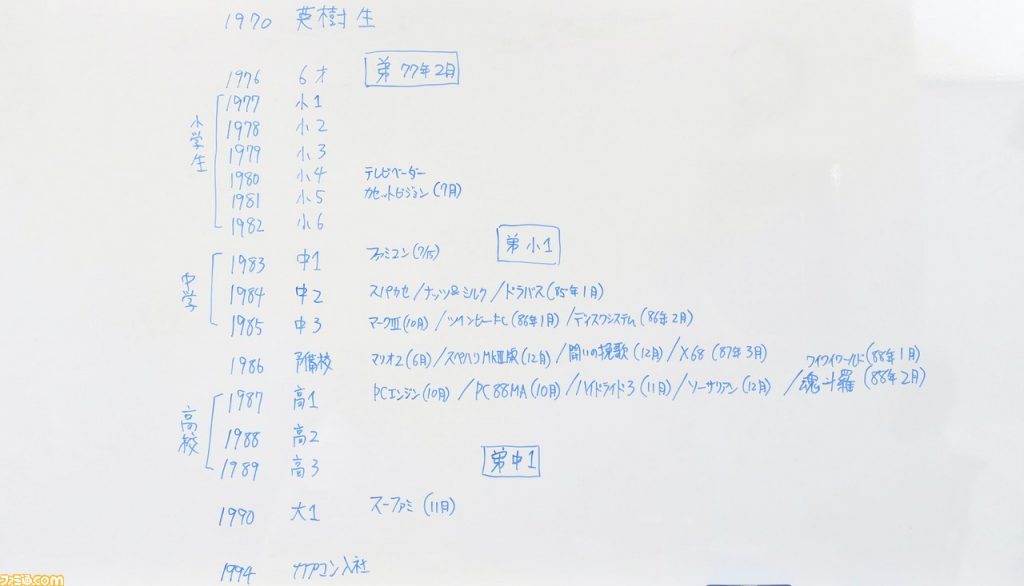 1970 英樹生
1976 6才 弟 77年2月
小学生
1977 小1
1978 小2
1979 小3
1980 小4 テレビベーダー
1981 小5 カセットビジョン(7月)
1982 小6
弟 小1
中学
1983 中1 ファミコン(7/15)
1984 中2 スパカセ/ナッツ&ミルク/ドラバス(85年1月)
1985 中3 マークⅢ(10月)/ツインビーFC(86年1月)/ディスクシステム(86年2月)
1986 予備校 マリオ2(6月)/スペハリMkⅢ版(12月)/闘いの挽歌(12月)/X68(87年3月)
ワイワイワールド(88年1月)
高校
1987 高1 PCエンジン(10月)/PC88MA(10月)/ハイドライド3(11月)/ソーサリアン(12月)/魂斗羅(88年2月)
1988 高2
1989 高3
弟 中1
1990 大1 スーファミ(11月)
1994 カプコン入社
ファミ通.com